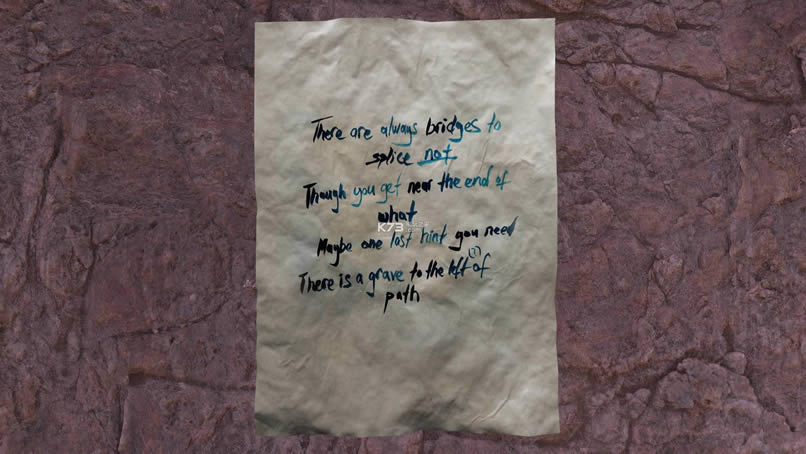 There are always bridges to
splice not
Though you get near the end of
what
Maybe one lost hint you need
(?)
There is a grave to the left of
path
K73